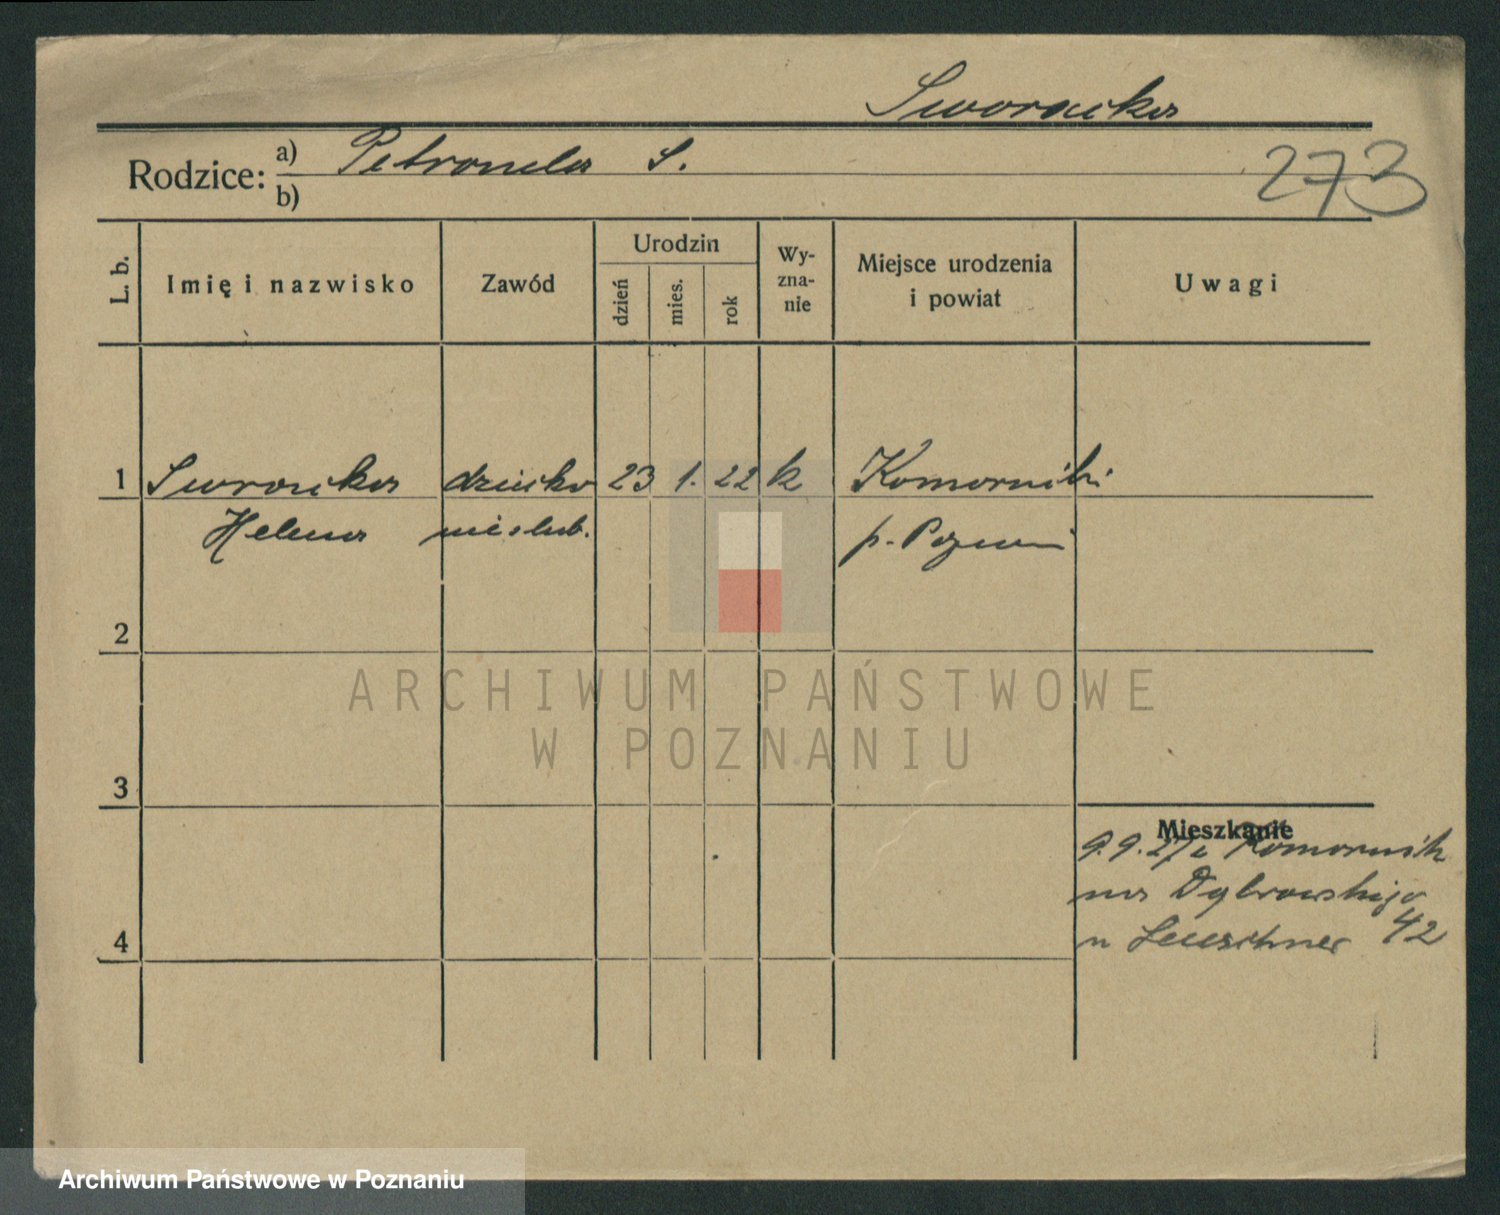 Swornicka
Rodzice: a) Petronela S.
b)
273
L. b. Imię i nazwisko Zawód Urodzin dzień mies. rok Wy-zna-nie Miejsce urodzenia i powiat Uwagi
1 Swornicka dziecko 23 1. 22 k Komorniki
Helena nieślub. p. Poznań
2
3
4
Mieszkanie
9.9.27 z Komornik
na Dąbrowskiego
u Leuschner 42
ARCHIWUM PAŃSTWOWE
W POZNANIU
Archiwum Państwowe w Poznaniu